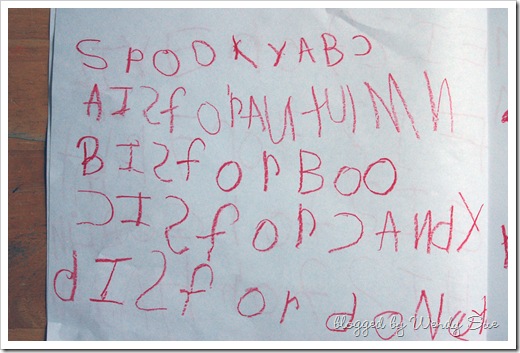 SPOOKY ABC
A IS for AUtUMN
B IS for BOO
C IS for CANdY
d IS for
blogged by Wendy Sue